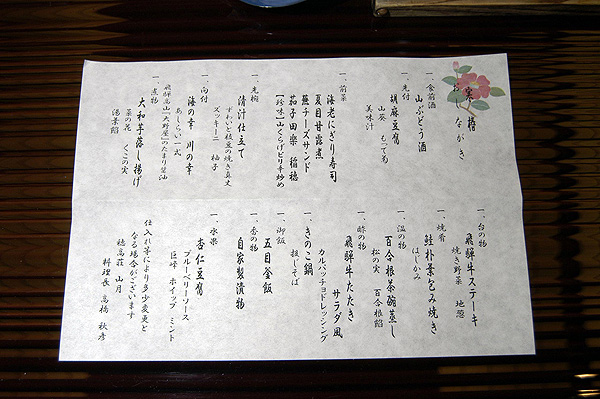 おしながき
一、食前酒
山ぶどう酒
一、先付
胡麻豆腐
山葵 もって菊
美味汁
一、前菜
海老にぎり寿司
夏目甘露煮
蕪チーズサンド
茄子田楽 稲穂
【珍味】山くらげピリ辛炒め
一、先椀
清汁仕立て
ずわいと枝豆の焼き真丈
ズッキーニ 柚子
一、向付
海の幸 川の幸
あしらい一式
飛騨高山"大野屋"のたまり醤油
一、煮物
大和芋落し揚げ
菜の花 くこの実
湯葉餡
一、台の物
飛騨牛ステーキ
焼き野菜 地葱
一、焼肴
鮭朴葉包み焼き
はじかみ
一、温の物
百合根茶碗蒸し
松の実 百合根餡
一、酢の物
飛騨牛たたき サラダ風
カルパッチョドレッシング
一、きのこ鍋
投じそば
一、御飯
五目釜飯
一、香の物
自家製漬物
一、水菓
杏仁豆腐
ブルーベリーソース
巨峰 ホイップ ミント
仕入れ等により多少変更と
なる場合がございます
穂高荘 山月
料理長 高橋 秋彦